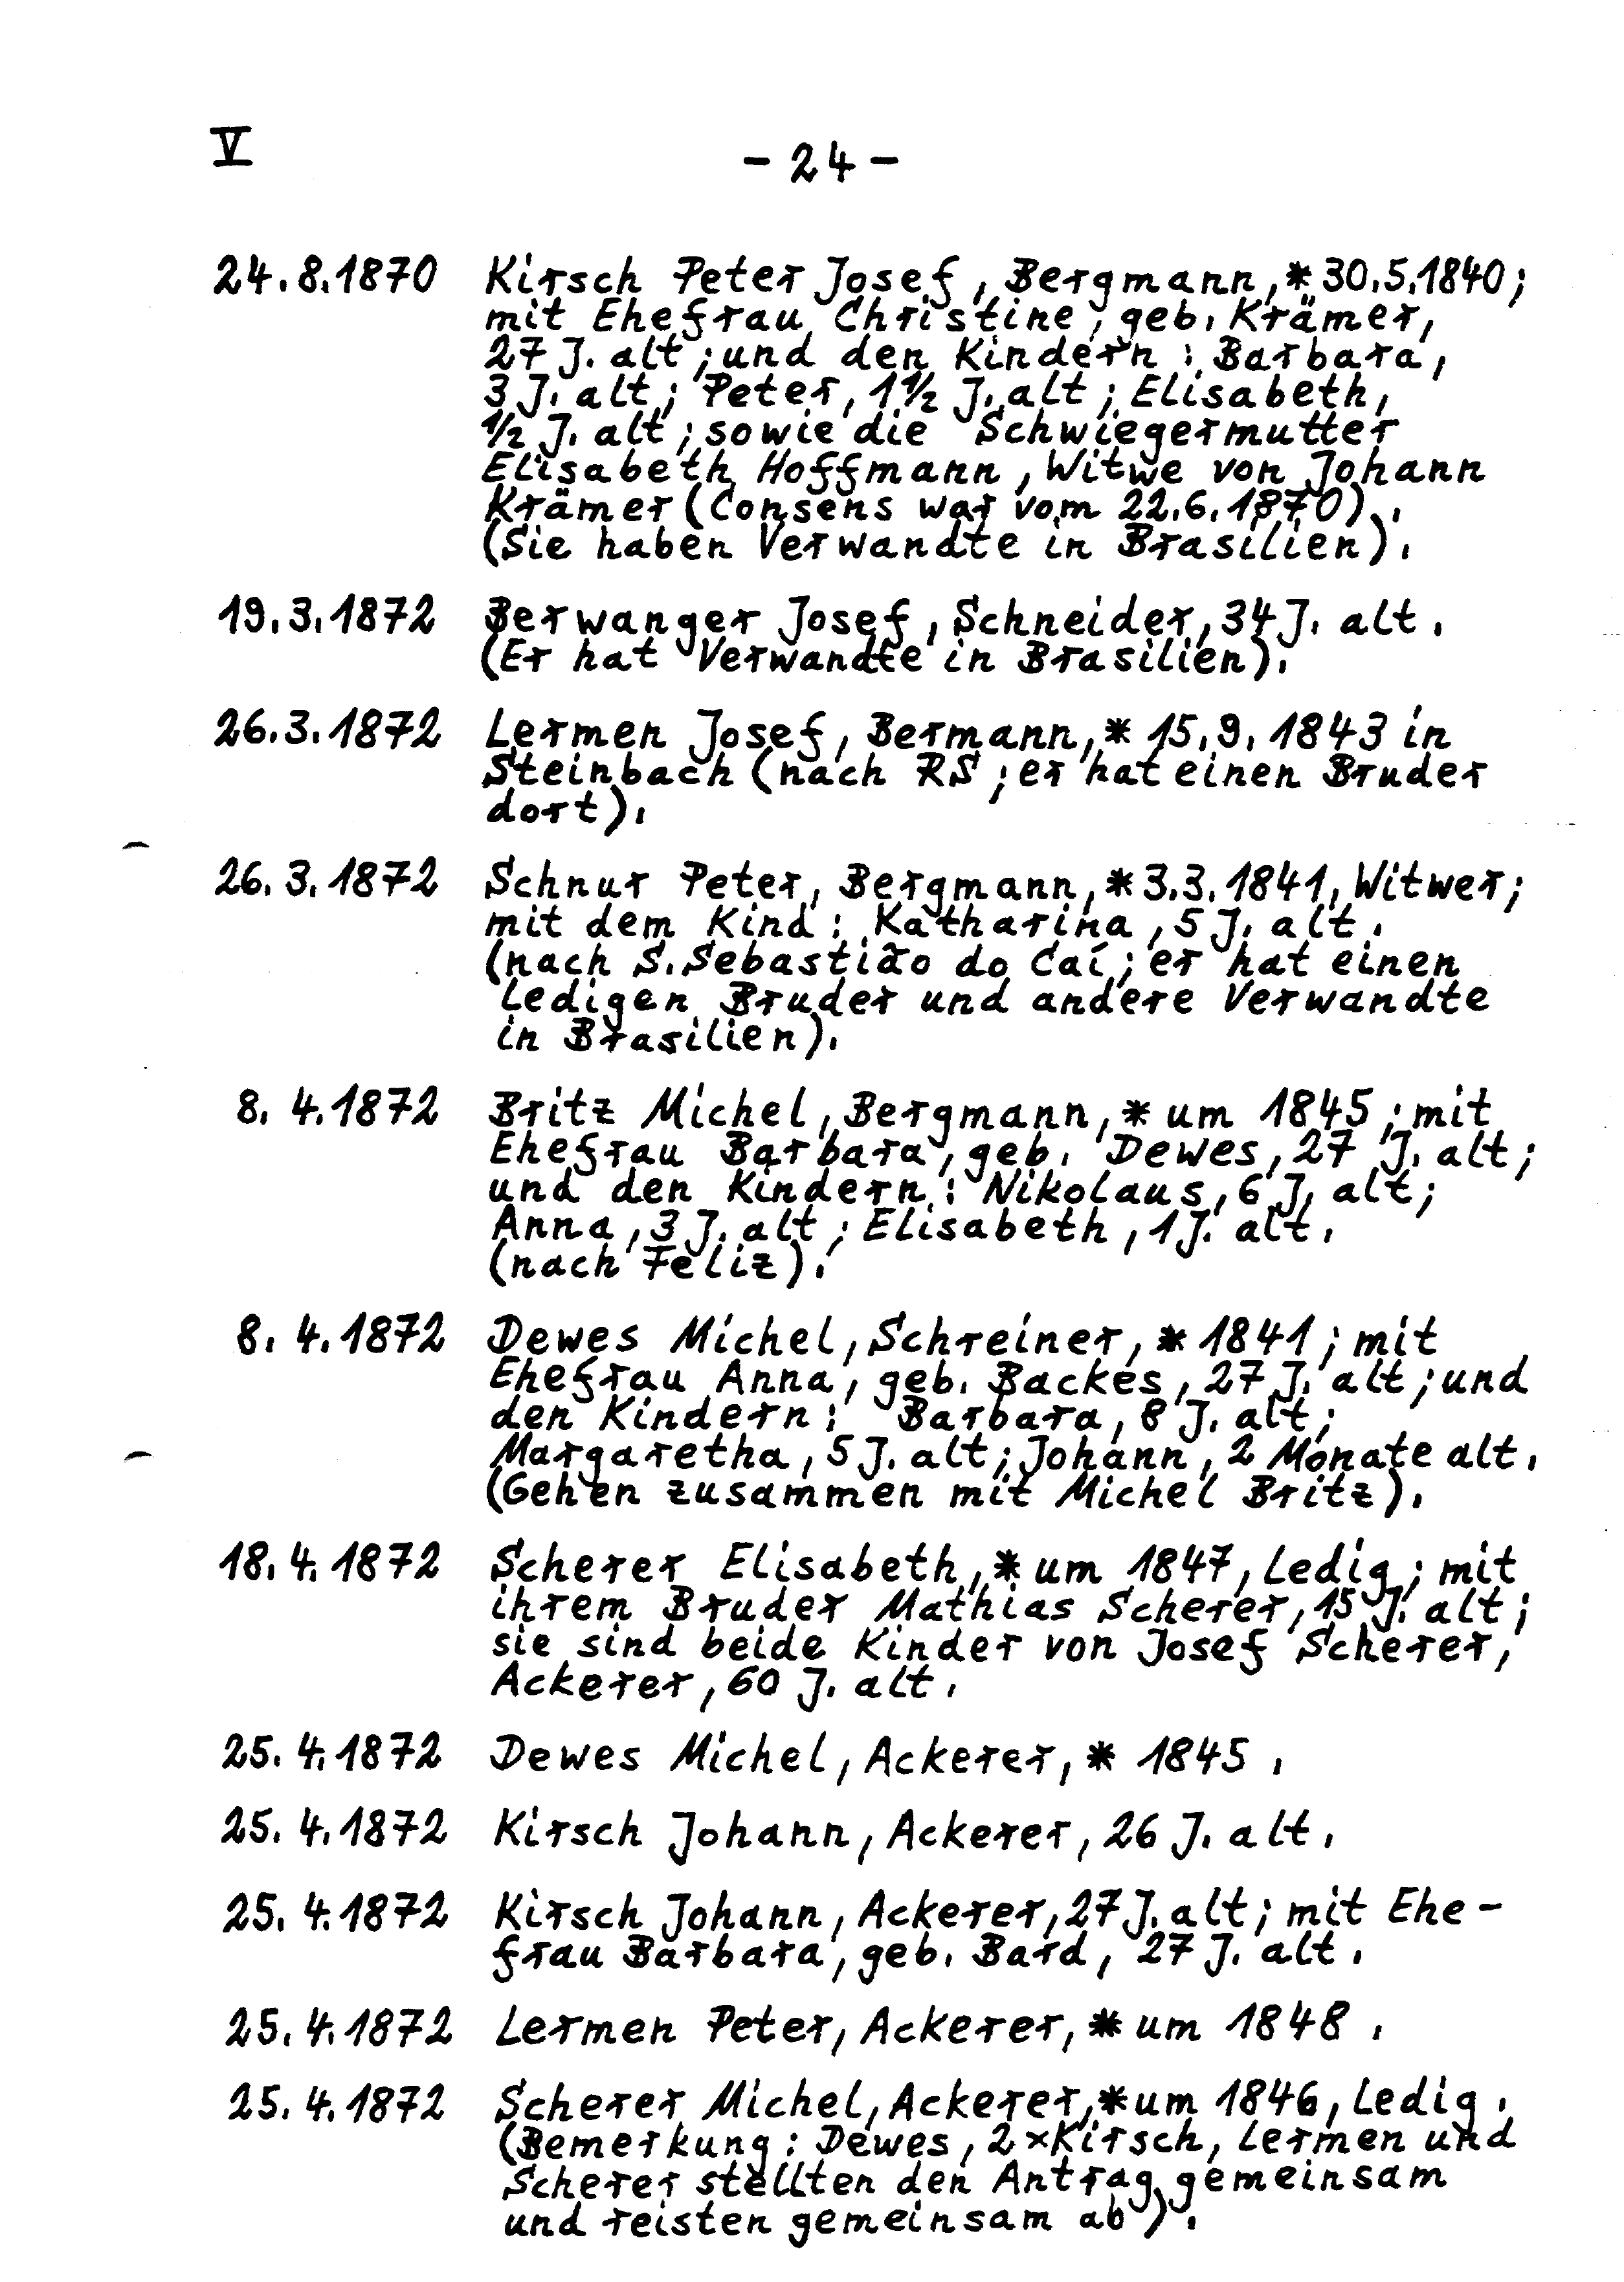 V
- 24 -
24.8.1870 Kirsch Peter Josef, Bergmann, * 30.5.1840;
mit Ehefrau Christine, geb. Krämer,
27 J. alt; und den Kindern: Barbara,
3 J. alt; Peter, 1 1/2 J. alt; Elisabeth,
1/2 J. alt; sowie die Schwiegermutter
Elisabeth Hoffmann, Witwe von Johann
Krämer (Consens war vom 22.6.1870).
(Sie haben Verwandte in Brasilien).
19.3.1872 Berwanger Josef, Schneider, 34 J. alt.
(Er hat Verwandte in Brasilien).
26.3.1872 Lermen Josef, Bermann, * 15.9.1843 in
Steinbach (nach RS; er hat einen Bruder
dort).
26.3.1872 Schnur Peter, Bergmann, * 3.3.1841, Witwer;
mit dem Kind: Katharina, 5 J. alt.
(nach S. Sebastião do Caí; er hat einen
ledigen Bruder und andere Verwandte
in Brasilien).
8. 4.1872 Britz Michel, Bergmann, * um 1845; mit
Ehefrau Barbara, geb. Dewes, 27 J. alt;
und den Kindern: Nikolaus, 6 J. alt;
Anna, 3 J. alt; Elisabeth, 1 J. alt.
(nach Feliz).
8. 4.1872 Dewes Michel, Schreiner, * 1841; mit
Ehefrau Anna, geb. Backes, 27 J. alt; und
den Kindern: Barbara, 8 J. alt;
Margaretha, 5 J. alt; Johann, 2 Monate alt.
(Gehen zusammen mit Michel Britz).
18.4.1872 Scherer Elisabeth, * um 1847, ledig; mit
ihrem Bruder Mathias Scherer, 15 J. alt;
sie sind beide Kinder von Josef Scherer,
Ackerer, 60 J. alt.
25.4.1872 Dewes Michel, Ackerer, * 1845.
25.4.1872 Kirsch Johann, Ackerer, 26 J. alt.
25.4.1872 Kirsch Johann, Ackerer, 27 J. alt; mit Ehe-
frau Barbara, geb. Bard, 27 J. alt.
25.4.1872 Lermen Peter, Ackerer, * um 1848.
25.4.1872 Scherer Michel, Ackerer, * um 1846, ledig.
(Bemerkung: Dewes, 2 x Kirsch, Lermen und
Scherer stellten den Antrag gemeinsam
und reisten gemeinsam ab).